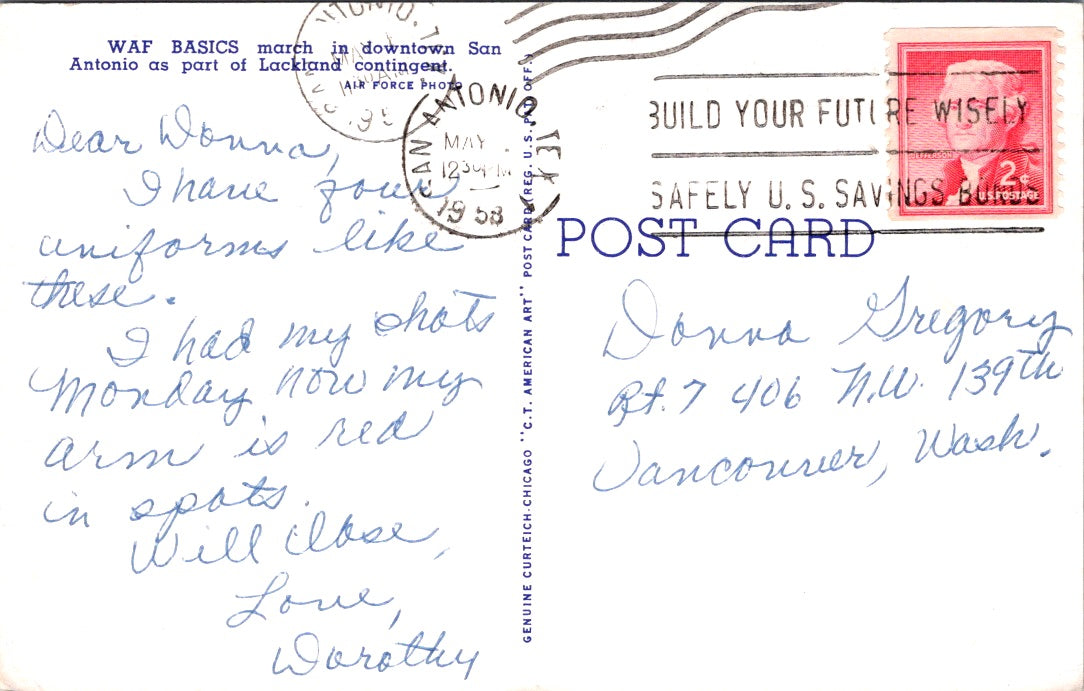 WAF BASICS march in downtown San
Antonio as part of Lackland contingent.
AIR FORCE PHOTO
Dear Donna,
I have four
uniforms like
these.
I had my shots
Monday now my
arm is red
in spots.
Will close,
Love,
Dorothy
GENUINE CURTEICH-CHICAGO "C.T. AMERICAN ART" POST CARD (REG. U.S. PAT. OFF.)
SAN ANTONIO, TEX
MAY
12 30 PM
1958
BUILD YOUR FUTURE WISELY
SAFELY U.S. SAVINGS BONDS
JEFFERSON
2¢
U.S. POSTAGE
POST CARD
Donna Gregory
Rt. 7 406 N.W. 139th
Vancouver, Wash.